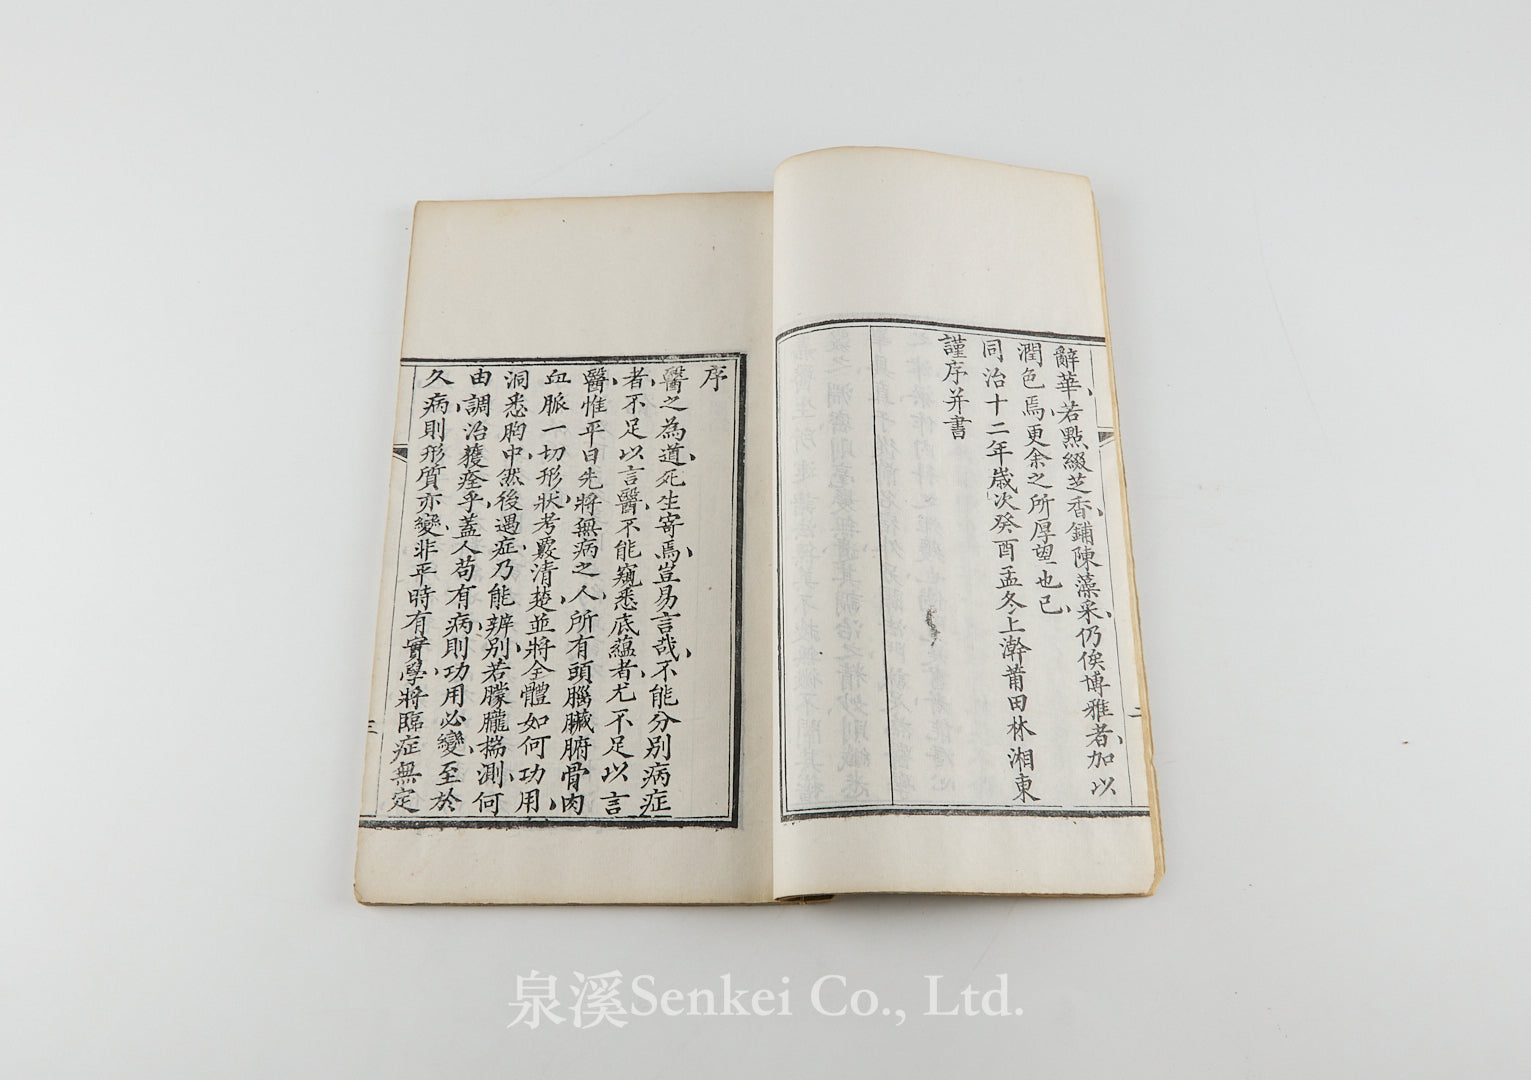 辭華若點綴芝香鋪陳藻采仍俟博雅者加以
潤色焉更余之所厚望也已
同治十二年歲次癸酉孟冬上澣莆田林湘東
謹序并書
二
序
醫之為道死生寄焉豈易言哉不能分別病症
者不足以言醫不能窺悉底蘊者尤不足以言
醫惟平日先將無病之人所有頭腦臟腑骨肉
血脈一切形狀考覈清楚並將全體如何功用
洞悉胸中然後遇症乃能辨別若朦朧揣測何
由調治獲痊乎蓋人苟有病則功用必變至於
久病則形質亦變非平時有實學將臨症無定
三
泉溪Senkei Co., Ltd.